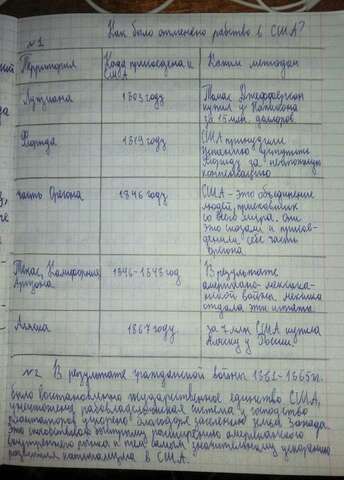 Как было отменено рабство в США?
№1
Территория
Когда присоединена к США
Каким методом
Луизиана
1803 году
Томас Джефферсон
купил у Наполеона
за 15 млн. долларов
Флорида
1819 году
США принудили
Испанию уступить
Флориду за небольшую
компенсацию
часть Орегона
1846 году
США - это объединение
людей, приехавших
со всего мира. Они
это сказали и присое-
динили себе часть
Орегона
Техас, Калифорния
Аризона
1846-1848 год
В результате
американо-мексика-
нской войны. Мексика
отдала эти штаты.
Аляска
1867 году
за 7 млн США купила
Аляску у России
№2 В результате гражданской войны 1861-1865 гг.
было восстановлено государственное единство США,
уничтожена рабовладельческая система и господство
плантаторов ускорено благодаря заселению земель Запада.
это способствовало быстрому расширению американского
внутреннего рынка и тем самым значительному ускорению
развития капитализма в США.